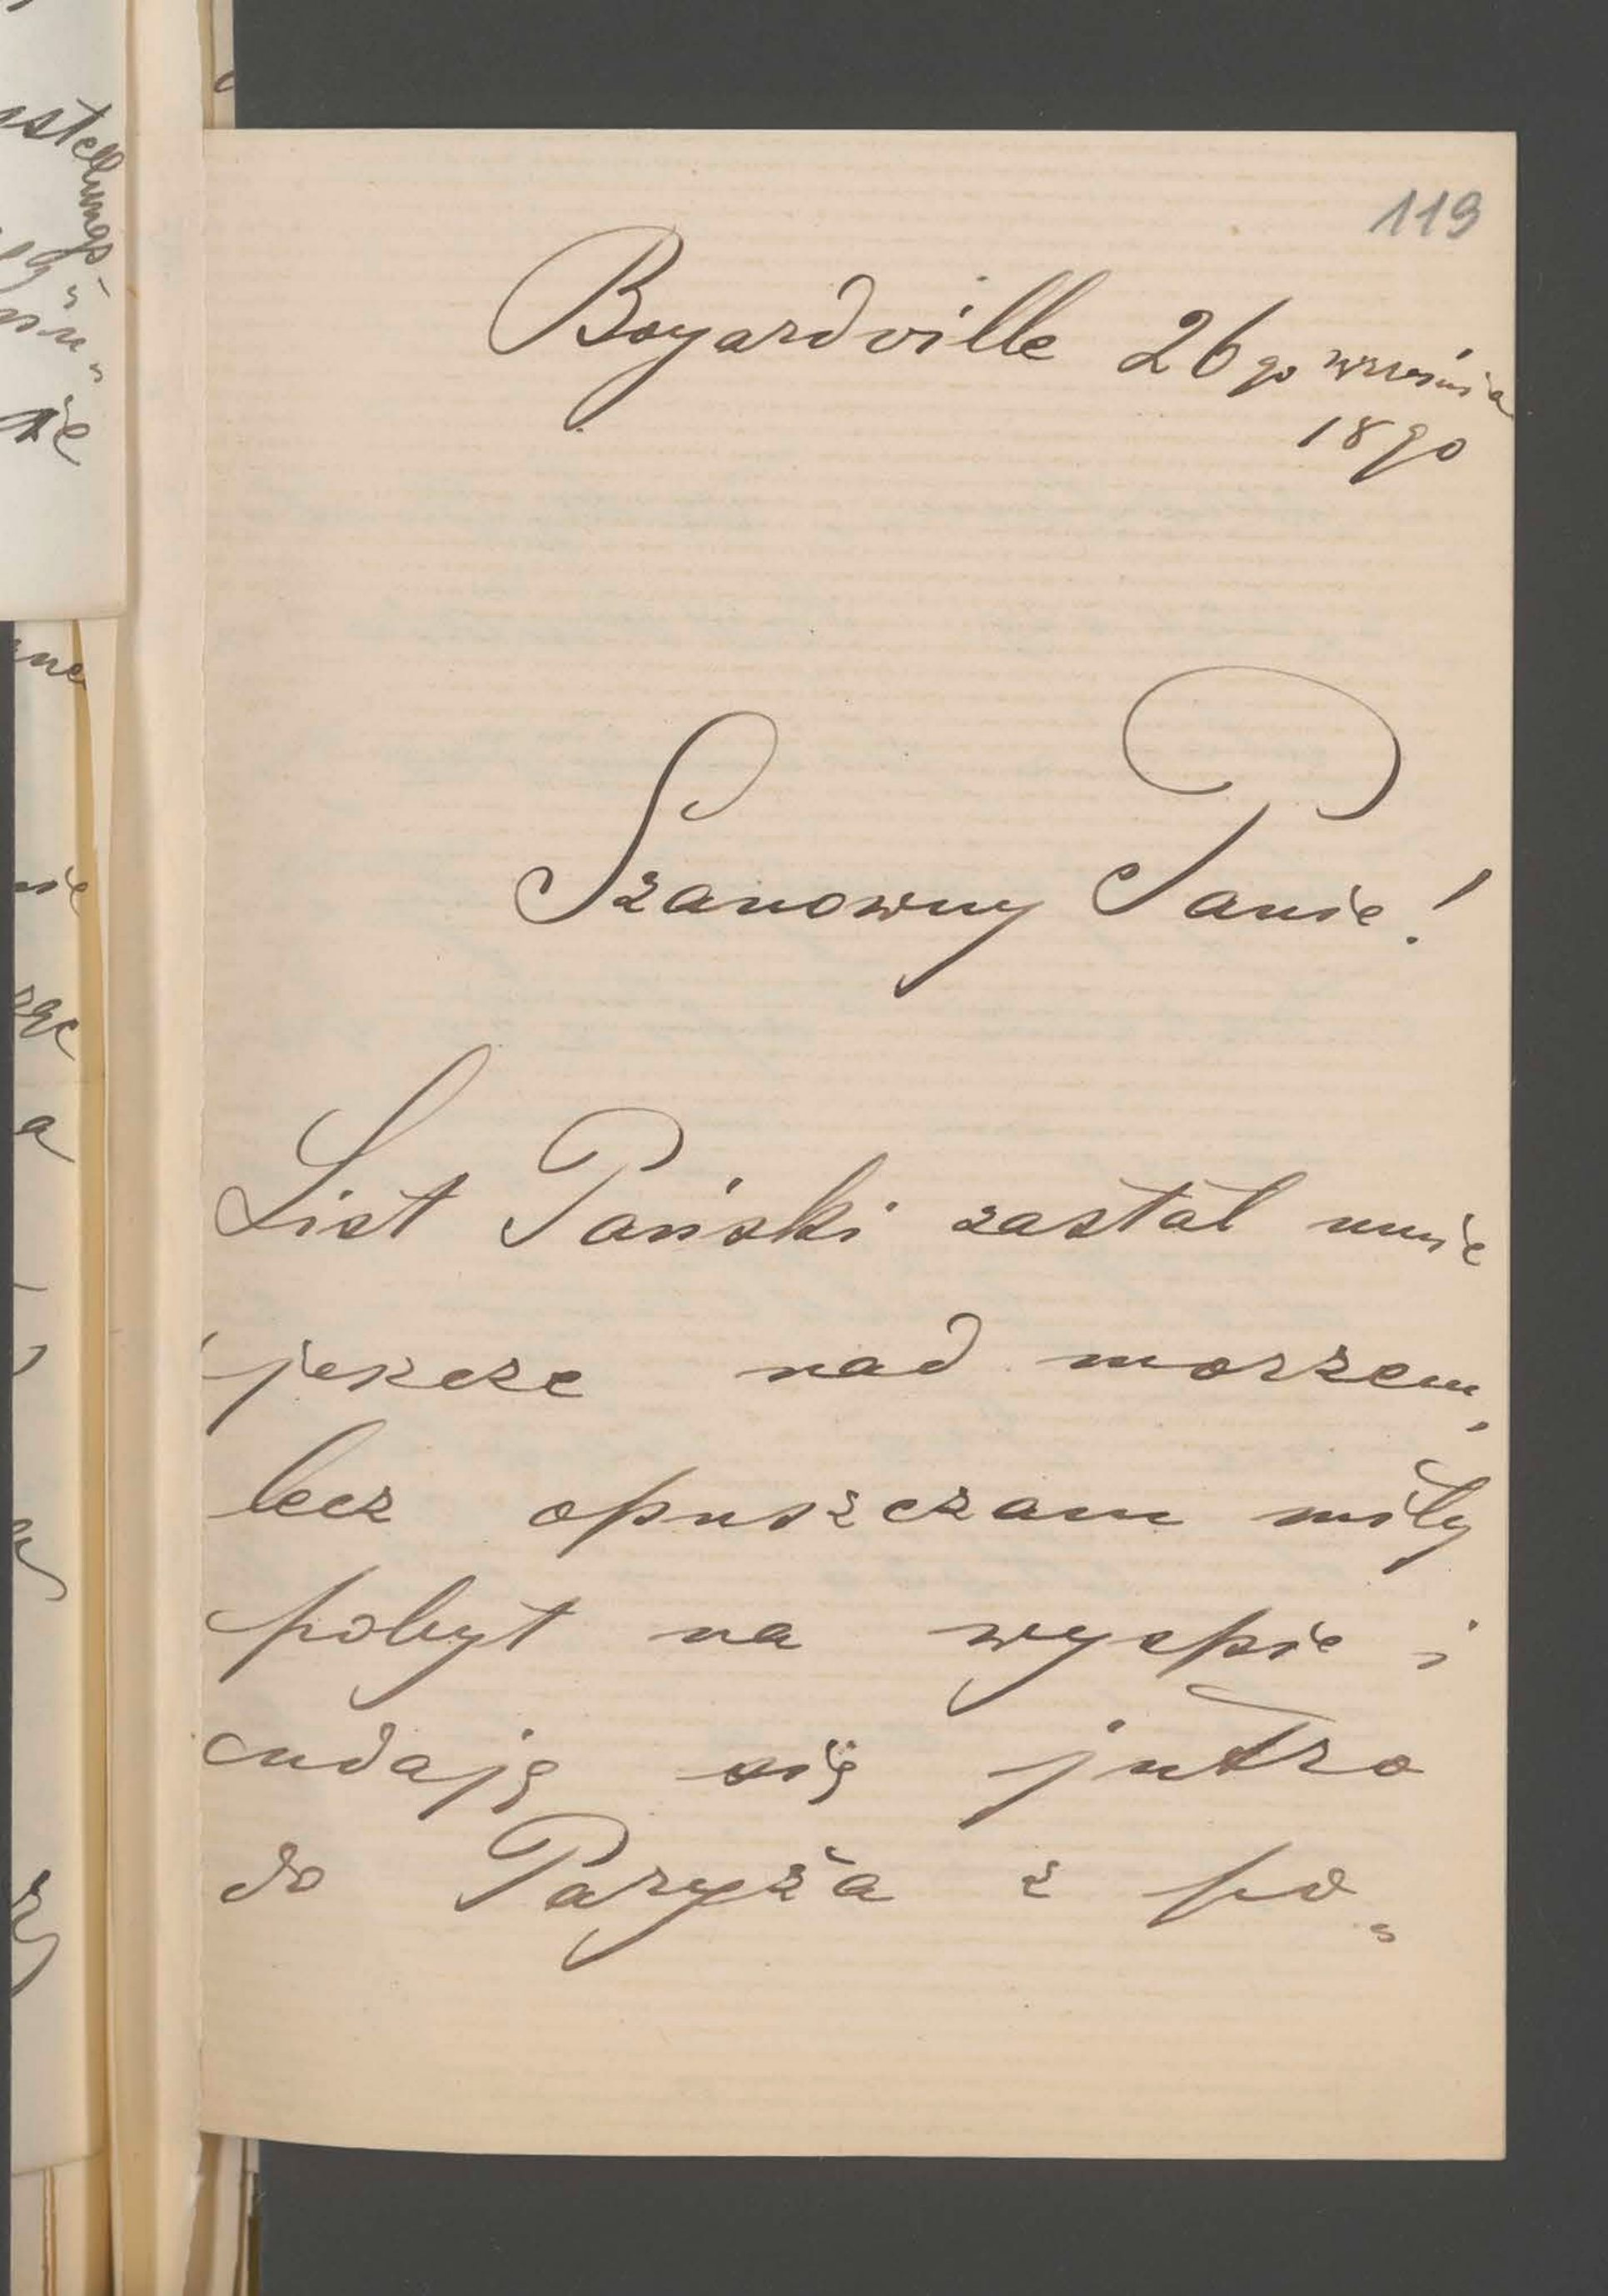 119
Boyardville 26go września
1890
Szanowny Panie!
List Pański zastał mnie
jeszcze nad morzem,
lecz opuszczam miły
pobyt na wyspie i
udaję się jutro
do Paryża z po„